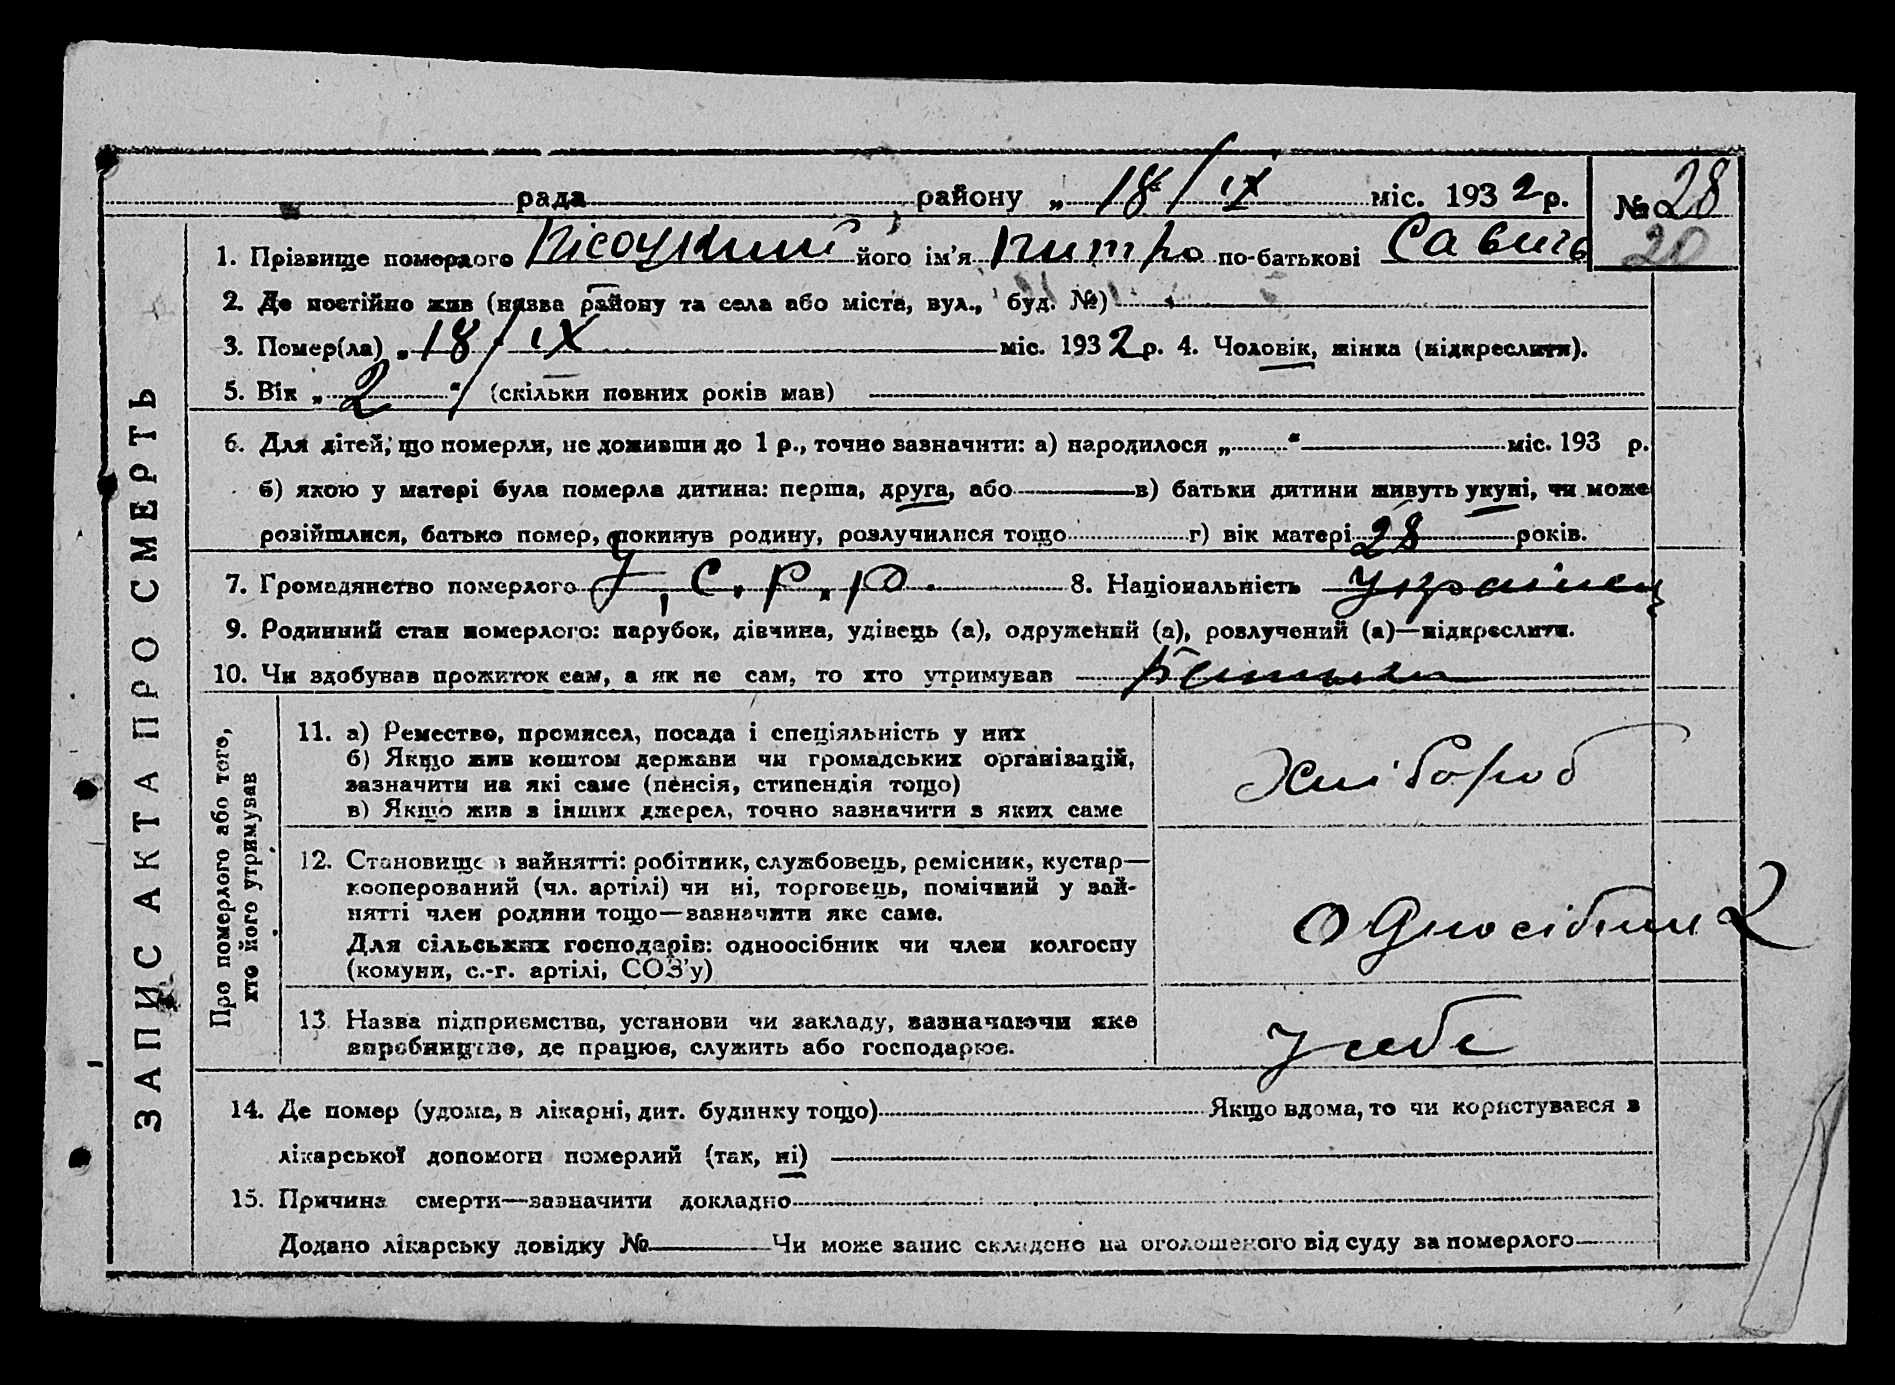 рада району „ 18/IX міс. 1932 р. № 28
20
1. Прізвище померлого його ім'я Питро по-батькові Савичь
2. Де постійно жив (назва району та села або міста, вул., буд. №)
3. Помер(ла) „ 18/IX міс. 1932 р. 4. Чоловік, жінка (підкреслити).
5. Вік „ 2 " (скільки повних років мав)
6. Для дітей, що померли, не доживши до 1 р., точно зазначити: а) народилося „ " міс. 193 р.
б) якою у матері була померла дитина: перша, друга, або в) батьки дитини живуть укупі, чи може
розійшлися, батько помер, покинув родину, розлучилися тощо г) вік матері 28 років.
7. Громадянство померлого У.С.Р.Р. 8. Національність Українец
9. Родинний стан померлого: парубок, дівчина, удівець (а), одружений (а), розлучений (а)—підкреслити.
10. Чи здобував прожиток сам, а як не сам, то хто утримував Батьки
ЗАПИС АКТА ПРО СМЕРТЬ
Про померлого або того,
хто його утримував
11. а) Ремество, промисел, посада і спеціяльність у них
б) Якщо жив коштом держави чи громадських організацій,
зазначити на які саме (пенсія, стипендія тощо)
в) Якщо жив з інших джерел, точно зазначити з яких саме
Хлібороб
12. Становище в зайнятті: робітник, службовець, ремісник, кустар—
кооперований (чл. артілі) чи ні, торговець, помічний у зай-
нятті член родини тощо—зазначити яке саме.
Для сільських господарів: одноосібник чи член колгоспу
(комуни, с.-г. артілі, СОЗ'у)
Односібник
13. Назва підприємства, установи чи закладу, зазначаючи яке
виробництво, де працює, служить або господарює.
У себе
14. Де помер (удома, в лікарні, дит. будинку тощо) Якщо вдома, то чи користувався з
лікарської допомоги померлий (так, ні)
15. Причина смерти—зазначити докладно
Додано лікарську довідку № Чи може запис складено на оголошеного від суду за померлого